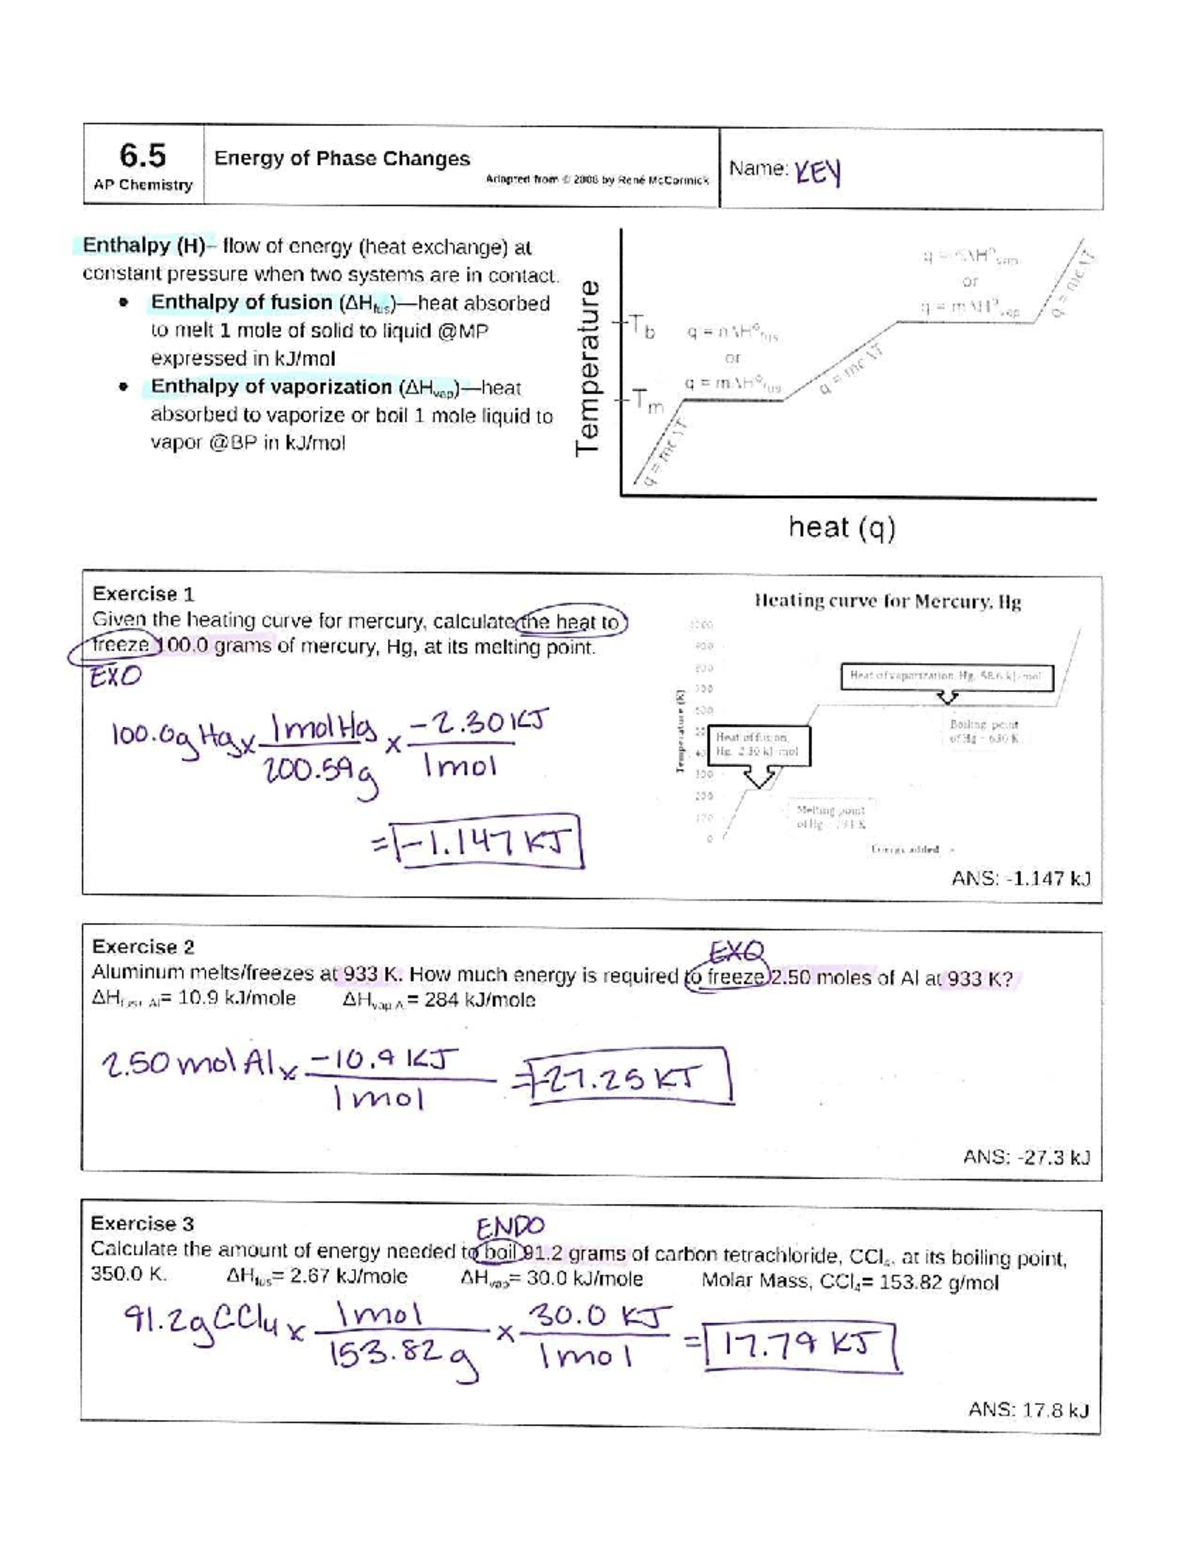 6.5
AP Chemistry
Energy of Phase Changes
Adapted from © 2008 by René McCormick
Name: KEY
Enthalpy (H)– flow of energy (heat exchange) at
constant pressure when two systems are in contact.
• Enthalpy of fusion (ΔHfus)—heat absorbed
to melt 1 mole of solid to liquid @MP
expressed in kJ/mol
• Enthalpy of vaporization (ΔHvap)—heat
absorbed to vaporize or boil 1 mole liquid to
vapor @BP in kJ/mol
Temperature
Tb
Tm
q = mcΔT
q = nΔH°fus
or
q = mΔH°fus
q = mcΔT
q = nΔH°vap
or
q = mΔH°vap
q = mcΔT
heat (q)
Exercise 1
Given the heating curve for mercury, calculate the heat to
freeze 100.0 grams of mercury, Hg, at its melting point.
EXO
100.0g Hg x 1 mol Hg / 200.59g x -2.30 KJ / 1 mol
= -1.147 KJ
Heating curve for Mercury, Hg
Temperature (K)
900
800
300
200
0
Heat of vaporization, Hg, 58.6 kJ/mol
Heat of fusion,
Hg, 2.30 kJ/mol
Boiling point
of Hg = 630 K
Melting point
of Hg
Energy added
ANS: -1.147 kJ
Exercise 2
EXO
Aluminum melts/freezes at 933 K. How much energy is required to freeze 2.50 moles of Al at 933 K?
ΔHfus, Al= 10.9 kJ/mole ΔHvap A = 284 kJ/mole
2.50 mol Al x -10.9 KJ / 1 mol = -27.25 KJ
ANS: -27.3 kJ
Exercise 3
ENDO
Calculate the amount of energy needed to boil 91.2 grams of carbon tetrachloride, CCl4, at its boiling point,
350.0 K. ΔHfus= 2.67 kJ/mole ΔHvap= 30.0 kJ/mole Molar Mass, CCl4= 153.82 g/mol
91.2g CCl4 x 1 mol / 153.82 g x 30.0 KJ / 1 mol = 17.79 KJ
ANS: 17.8 kJ